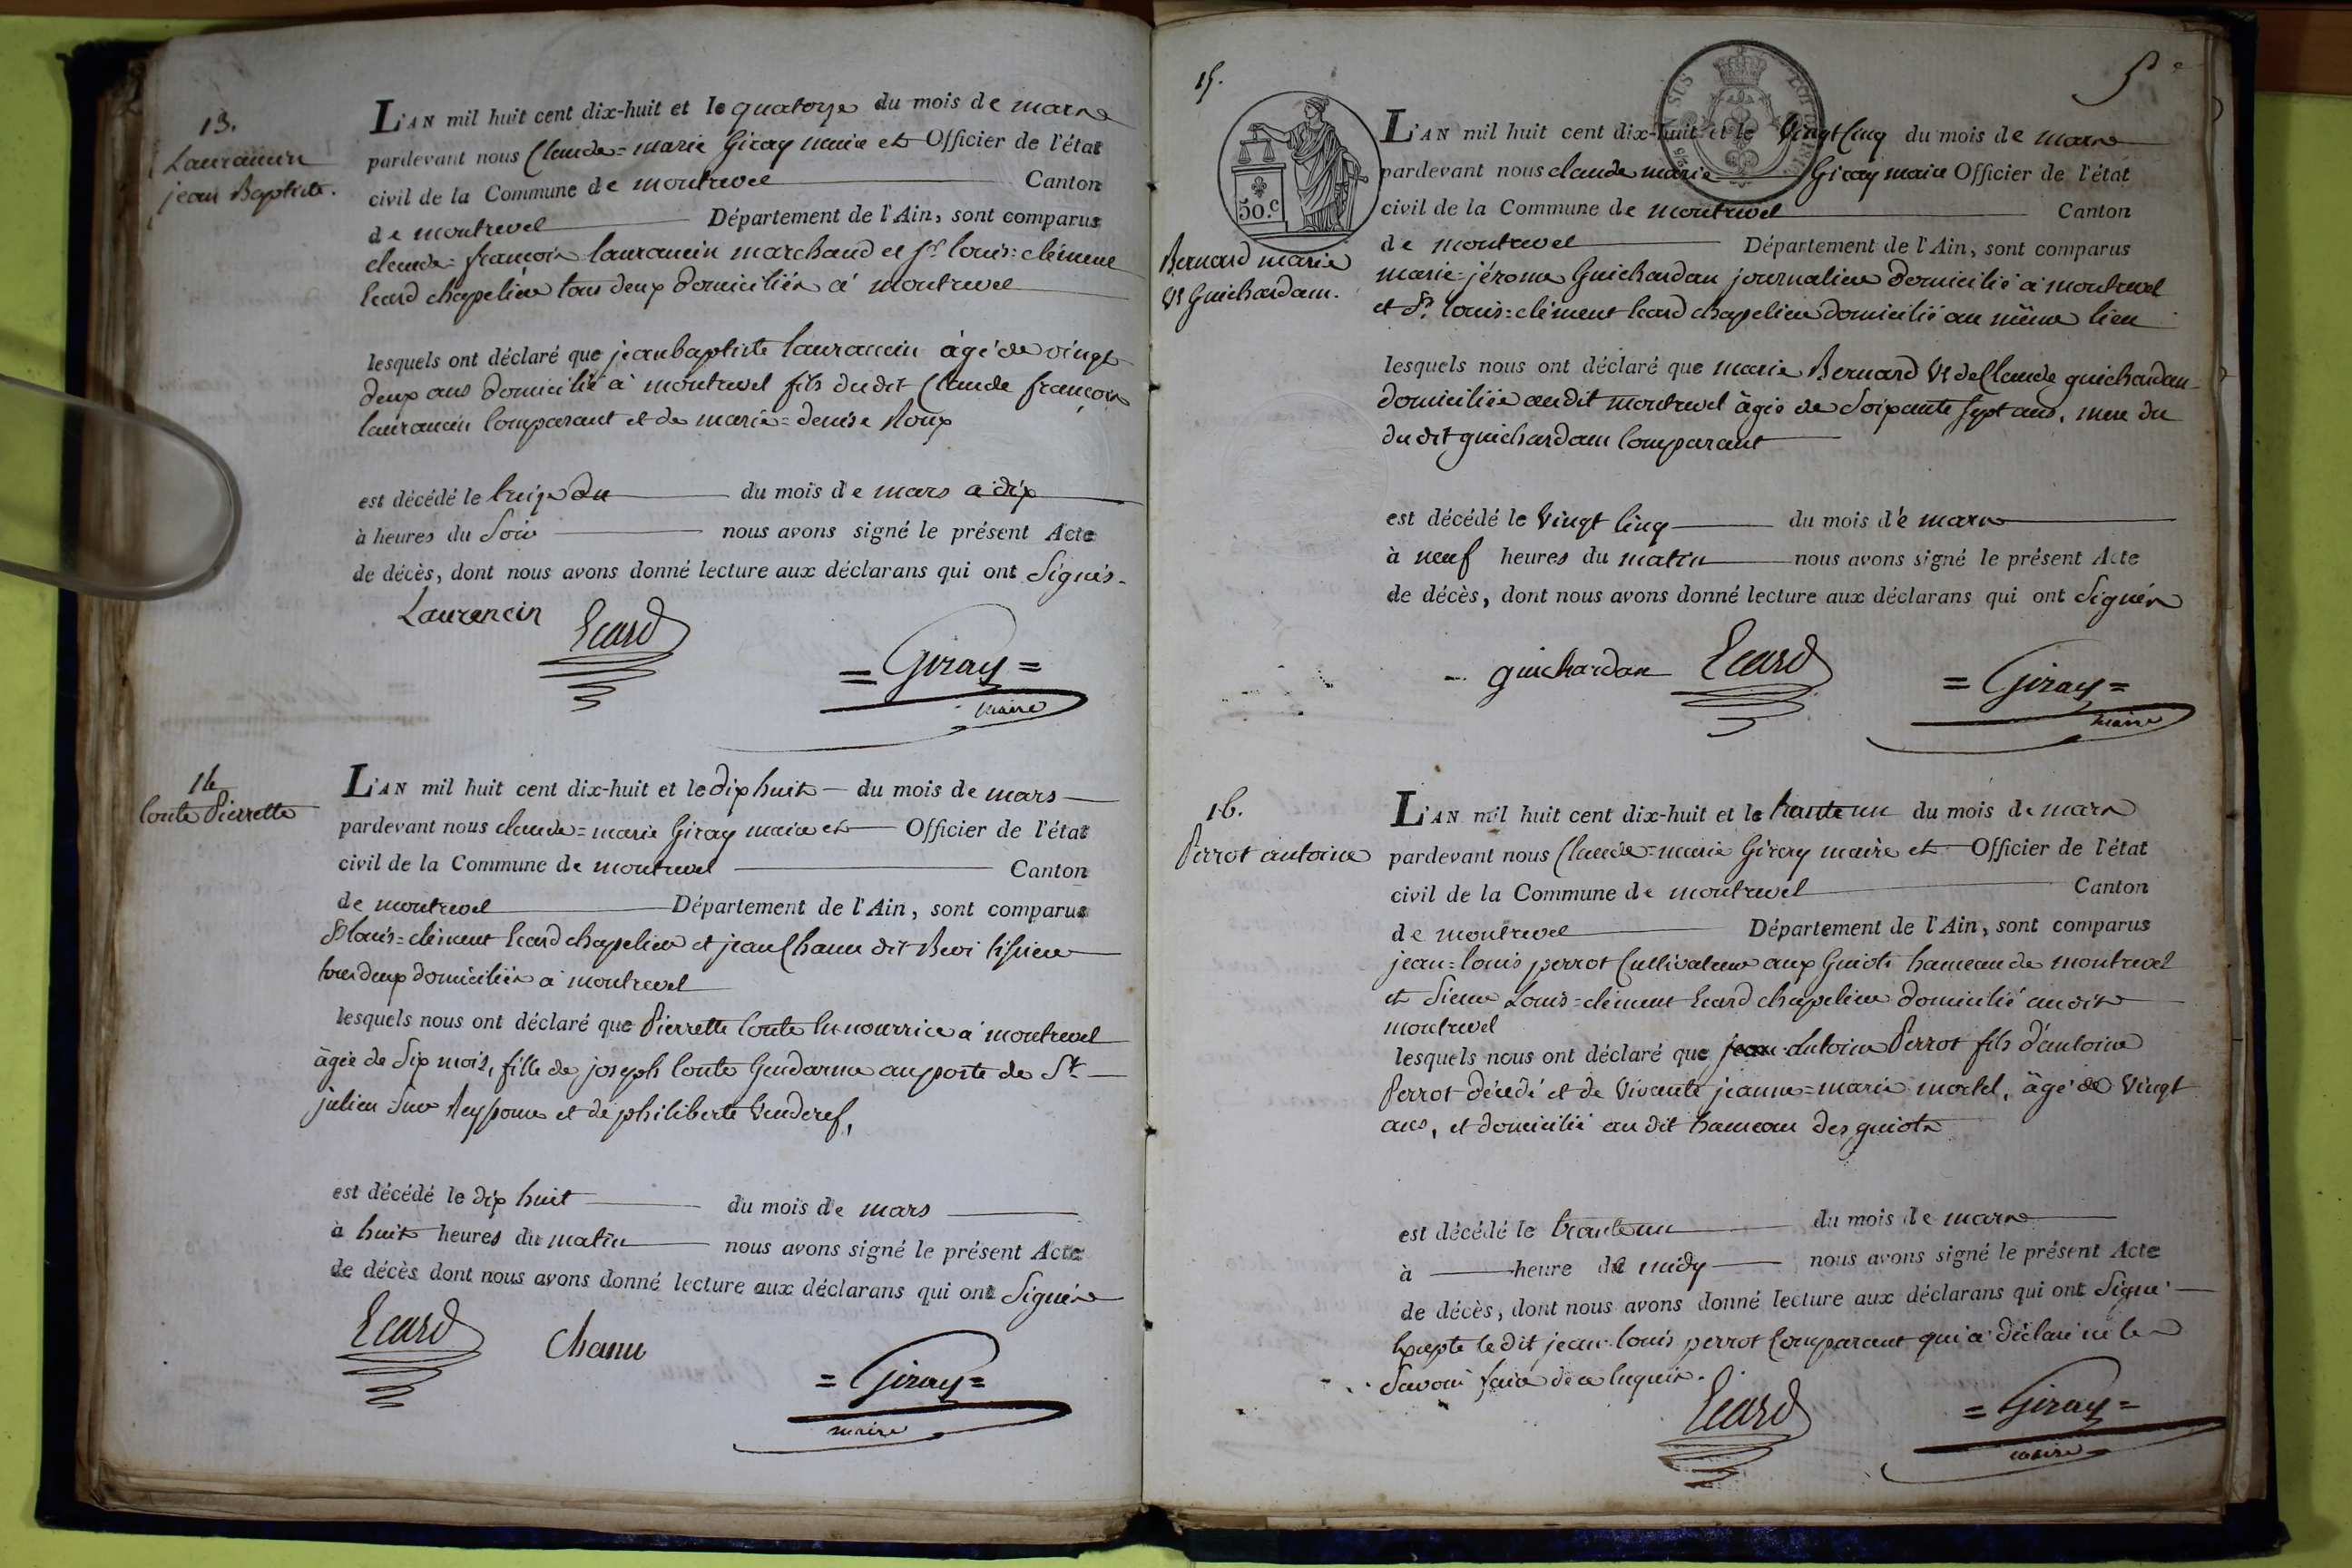 13.
Laurancin
jean Baptiste.
L'AN mil huit cent dix-huit et le quatorze du mois de mars
pardevant nous Claude=marie Giray maire et Officier de l'état
civil de la Commune de montrevel Canton
de montrevel Département de l'Ain, sont comparus
claude=françois laurancin marchand et Sr. louis=clément
Ecard chapelier tous deux domiciliés à montrevel
lesquels ont déclaré que jean baptiste laurancin âgé de vingt
deux ans domicilié à montrevel fils dudit Claude françois
laurancin Comparant et de marie=denise Roux
est décédé le treize du du mois de mars a dix
à heures du Soir nous avons signé le présent Acte
de décès, dont nous avons donné lecture aux déclarans qui ont Signés.
Laurencin Ecard
= Giray =
maire
14
Conte Pierrette
L'AN mil huit cent dix-huit et le dix huit du mois de mars
pardevant nous claude=marie Giray maire et Officier de l'état
civil de la Commune de montrevel Canton
de montrevel Département de l'Ain, sont comparus
Sr louis=clément Ecard chapelier et jean Chanu dit Bevi tissier
tous deux domiciliés à montrevel
lesquels nous ont déclaré que Pierrette Conte en nourrice à montrevel
âgée de Six mois, fille de joseph Conte Gendarme au poste de St.
julien Sur Reyssouse et de philiberte Venderef,
est décédé le dix huit du mois de mars
à huit heures du matin nous avons signé le présent Acte
de décès dont nous avons donné lecture aux déclarans qui ont Signés
Ecard Chanu
= Giray =
maire
15.
5e
50.c
Bernard marie
Ve Guichardan.
L'AN mil huit cent dix-huit et le Vingt Cinq du mois de mars
pardevant nous claude marie Giray maire Officier de l'état
civil de la Commune de montrevel Canton
de montrevel Département de l'Ain, sont comparus
marie=jérome Guichardan journalier domicilié à montrevel
et Sr. louis=clément Ecard chapelier domicilié au même lieu
lesquels nous ont déclaré que marie Bernard Ve de Claude guichardan
domiciliée audit montrevel âgée de Soixante Sept ans, mere du
du dit guichardan Comparant
est décédé le Vingt Cinq du mois de mars
à neuf heures du matin nous avons signé le présent Acte
de décès, dont nous avons donné lecture aux déclarans qui ont Signés
guichardan Ecard
= Giray =
maire
16.
Perrot antoine
L'AN mil huit cent dix-huit et le trante un du mois de mars
pardevant nous Claude=marie Giray maire et Officier de l'état
civil de la Commune de montrevel Canton
de montrevel Département de l'Ain, sont comparus
jean=louis perrot Cultivateur aux Guiots hameau de montrevel
et Sieur Louis=clément Ecard chapelier domicilié au dit
montrevel
lesquels nous ont déclaré que jean antoine Perrot fils d'antoine
Perrot décédé et de Vivante jeanne=marie mortel, âgé de Vingt
ans, et domicilié au dit hameau des guiots
est décédé le trante un du mois de mars
à heure de midy nous avons signé le présent Acte
de décès, dont nous avons donné lecture aux déclarans qui ont Signé
Excepté le dit jean louis perrot Comparant qui a déclaré ne le
Savoir faire de ce Enquis.
Ecard
= Giray =
maire